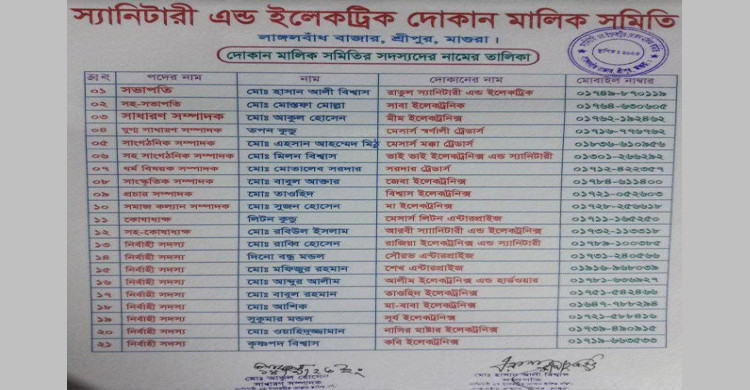 স্যানিটারী এন্ড ইলেকট্রিক দোকান মালিক সমিতি
লাঙ্গলবাঁধ বাজার, শ্রীপুর, মাগুরা।
দোকান মালিক সমিতির সদস্যদের নামের তালিকা
ক্রঃ নং পদের নাম নাম দোকানের নাম মোবাইল নাম্বার
০১ সভাপতি মোঃ হাসান আলী বিশ্বাস রাতুল স্যানিটারী এন্ড ইলেকট্রিক ০১৭৪৯-৮৭০১১৯
০২ সহ-সভাপতি মোঃ মোস্তফা মোল্লা সাবা ইলেকট্রনিক ০১৭৬৪-৬৩০৬০৫
০৩ সাধারণ সম্পাদক মোঃ আকুল হোসেন মীম ইলেকট্রনিক্স ০১৭৬২-১৯২৪৬২
০৪ যুগ্ম সাধারণ সম্পাদক তপন কুন্ডু মেসার্স স্বর্ণালী ট্রেডার্স ০১৭১৬-৭৭৬৭৬২
০৫ সাংগঠনিক সম্পাদক মোঃ এহসান আহম্মেদ মিঠু মেসার্স মক্কা ট্রেডার্স ০১৮৩৬-৬১০৯৫৬
০৬ সহ সাংগঠনিক সম্পাদক মোঃ মিলন বিশ্বাস ভাই ভাই ইলেকট্রনিক্স এন্ড স্যানিটারী ০১৩০১-২৬৬২৯২
০৭ ধর্ম বিষয়ক সম্পাদক মোঃ মোতালেব সরদার সরদার ট্রেডার্স ০১৭১২-৪২২৩৫৭
০৮ সাংস্কৃতিক সম্পাদক মোঃ বাবুল আক্তার জেবা ইলেকট্রনিক্স ০১৭৮৪-৬১১৪০০
০৯ প্রচার সম্পাদক মোঃ তাওহিদ বিশ্বাস ইলেকট্রনিক্স ০১৭২১-০৫২৬০৩
১০ সমাজ কল্যান সম্পাদক মোঃ সুজন হোসেন মা ইলেকট্রনিক্স ০১৭২৮-২৫৬৬১৮
১১ কোষাধ্যক্ষ লিটন কুন্ডু মেসার্স লিটন এন্টারপ্রাইজ ০১৭১১-১৬৫২৫০
১২ সহ-কোষাধ্যক্ষ মোঃ রবিউল ইসলাম আরবী স্যানিটারী এন্ড ইলেকট্রনিক্স ০১৭৩২-১১৩৩১৮
১৩ নির্বাহী সদস্য মোঃ রাব্বি হোসেন রাজিয়া ইলেকট্রনিক্স এন্ড স্যানিটারী ০১৭৮৯-১০০৩৮৫
১৪ নির্বাহী সদস্য দিনো বন্ধু মন্ডল সৌরভ এন্টারপ্রাইজ ০১৭৩১-২৪০৫৬৬
১৫ নির্বাহী সদস্য মোঃ মফিজুর রহমান শেখ এন্টারপ্রাইজ ০১৯১৬-৯৬৮০৩৯
১৬ নির্বাহী সদস্য মোঃ আব্দুর আলীম আলীম ইলেকট্রনিক্স এন্ড হার্ডওয়ার ০১৭৮১-৬৩৬৯২৭
১৭ নির্বাহী সদস্য মোঃ বাবুল রহমান তাওহিদ ইলেকট্রনিক্স ০১৭৫১-৫৪২৪৬৬
১৮ নির্বাহী সদস্য মোঃ আশিক মা-বাবা ইলেকট্রনিক্স ০১৬৪৭-৭৮৮২৯৪
১৯ নির্বাহী সদস্য সুকুমার মন্ডল সূর্য ইলেকট্রনিক্স ০১৭২১-৫৮৮৪১৬
২০ নির্বাহী সদস্য মোঃ ওয়াহিদুজ্জামান নাসির মাষ্টার ইলেকট্রনিক্স ০১৭৩৯-৪৯০৯১৫
২১ নির্বাহী সদস্য কৃষ্ণপদ বিশ্বাস কবি ইলেকট্রনিক্স ০১৭১৯-৬৬৩৫৩৩
মোঃ আকুল হোসেন মোঃ হাসান আলী বিশ্বাস
সাধারণ সম্পাদক সভাপতি